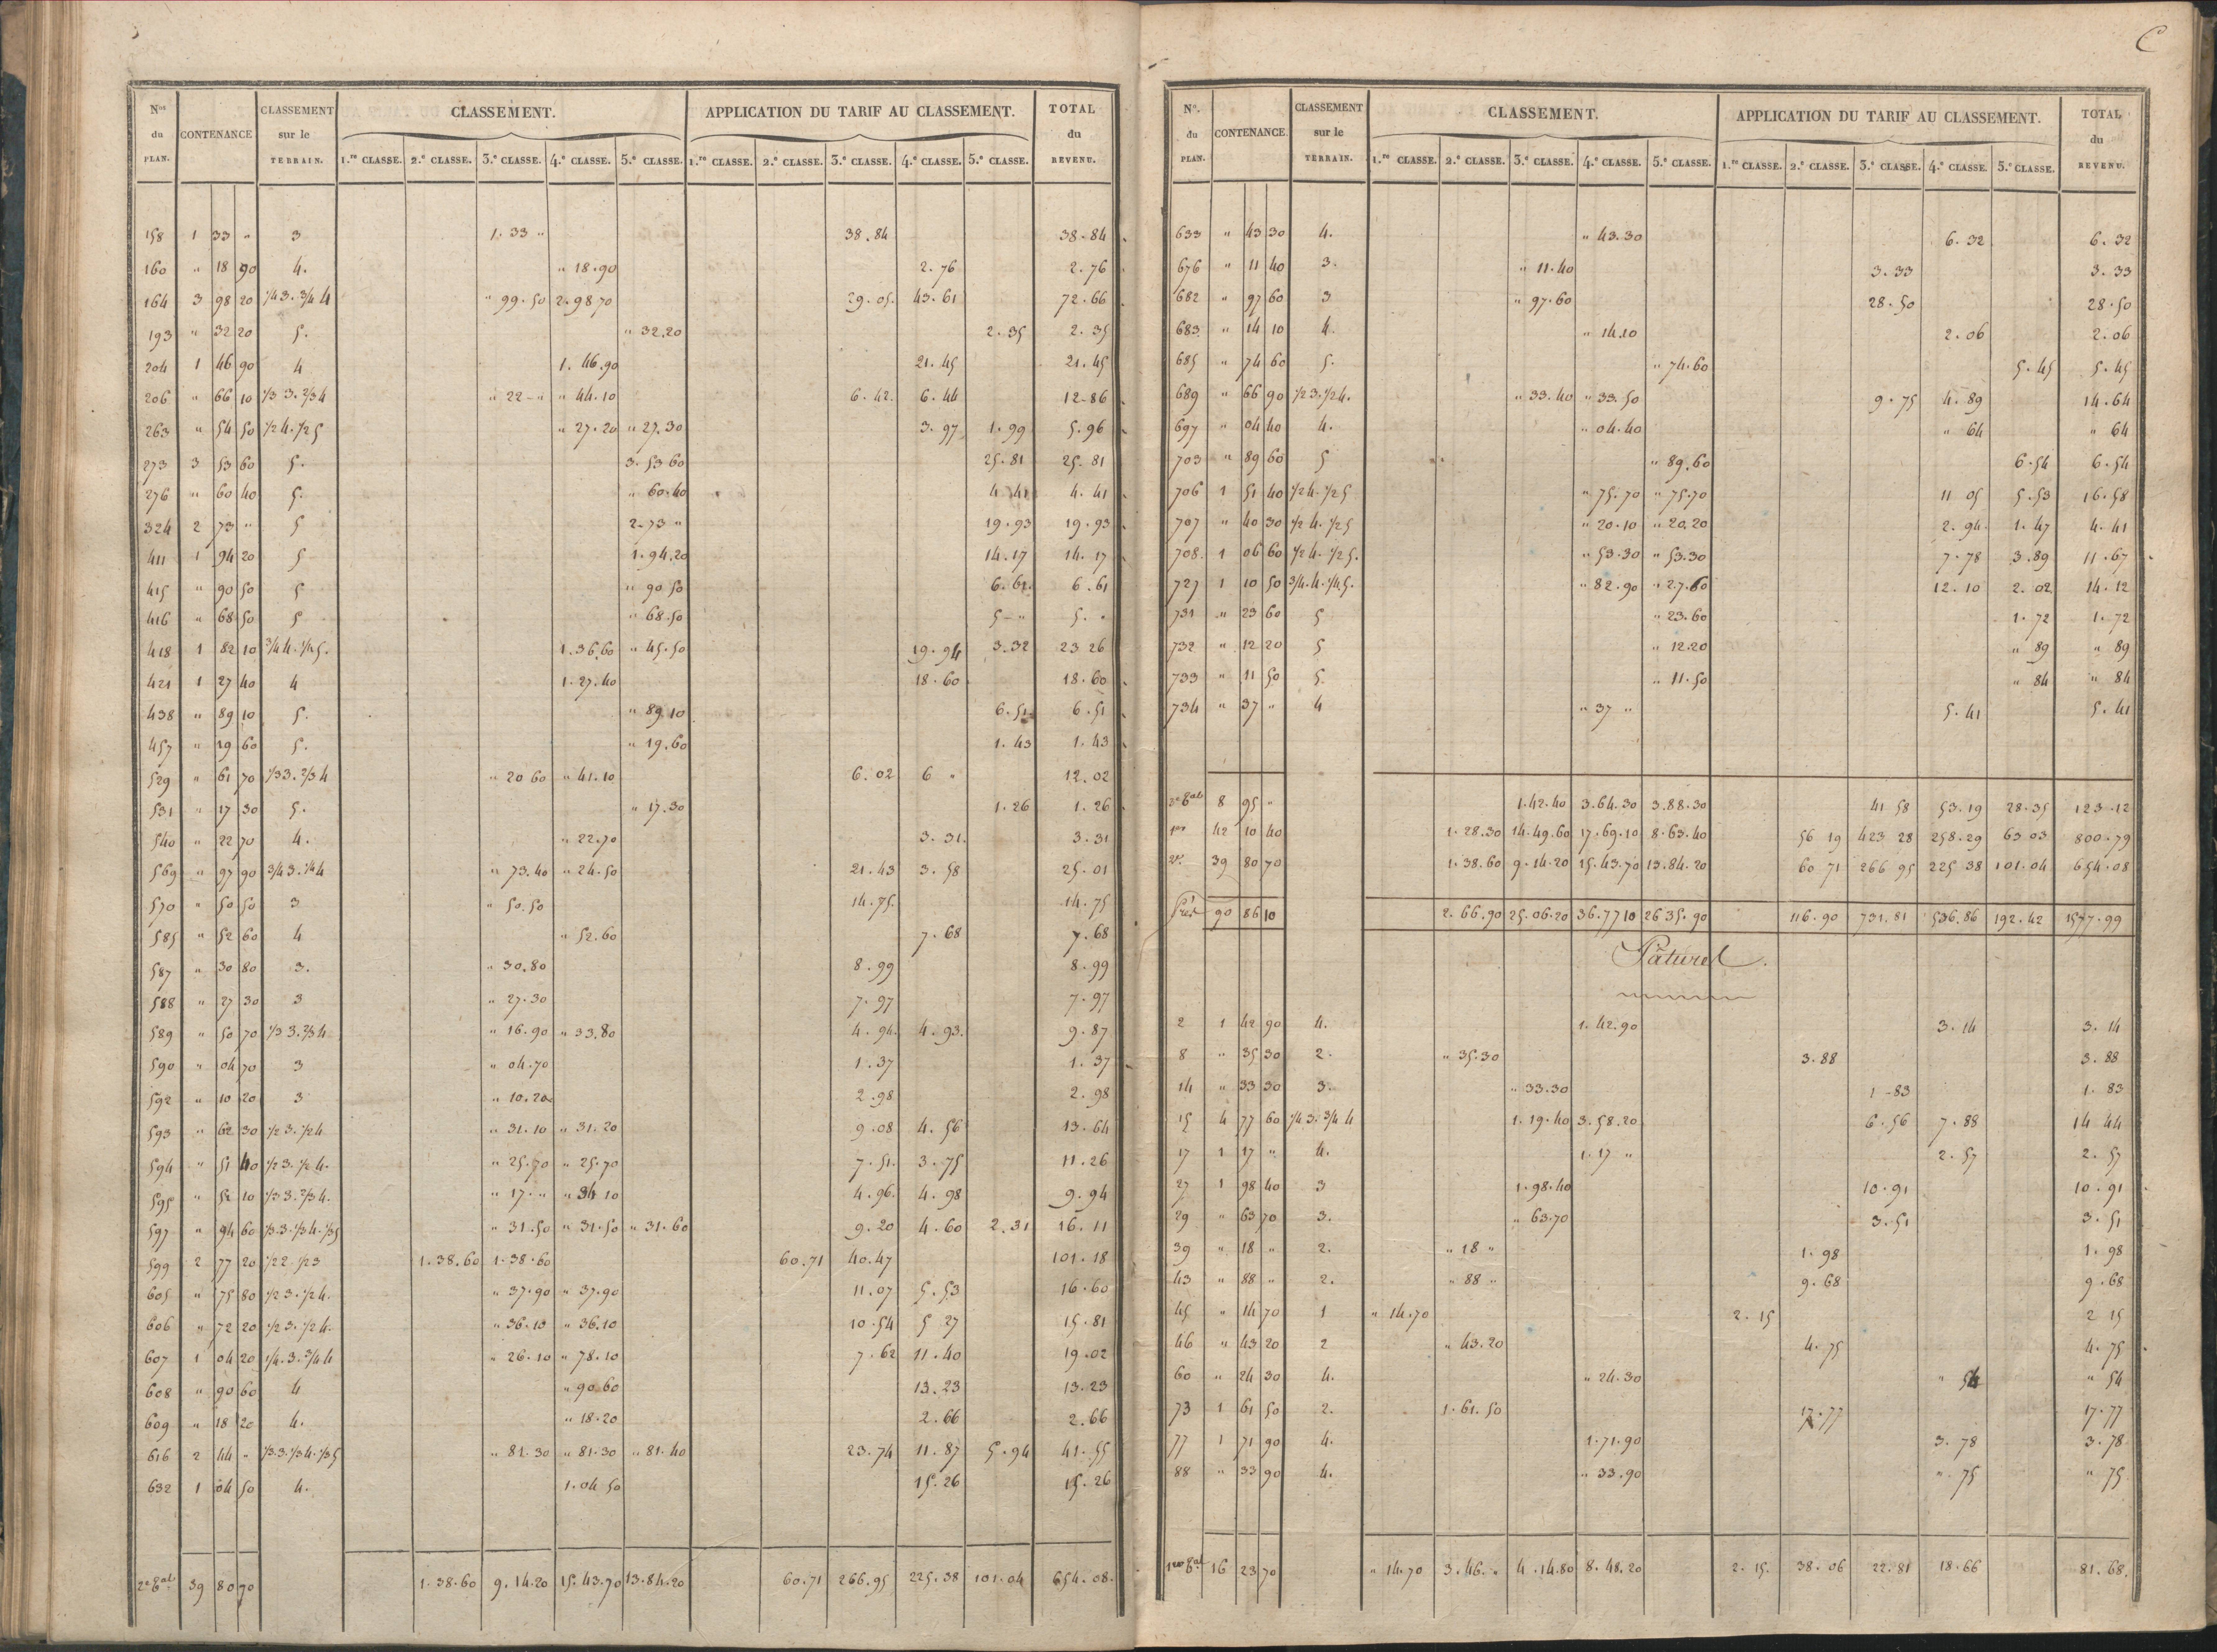 Nos du PLAN. CONTENANCE CLASSEMENT sur le TERRAIN. CLASSEMENT. APPLICATION DU TARIF AU CLASSEMENT. TOTAL du REVENU.
1.re CLASSE. 2.e CLASSE. 3.e CLASSE. 4.e CLASSE. 5.e CLASSE. 1.re CLASSE. 2.e CLASSE. 3.e CLASSE. 4.e CLASSE. 5.e CLASSE.
158 1 33 " 3 1. 33 " 38.84 38.84
160 " 18 90 4. " 18.90 2.76 2.76
164 3 98 20 1/4 3. 3/4 4 " 99.50 2.98 70 29.05. 43.61 72.66
193 " 32 20 5. " 32.20 2.35 2.35
204 1 46 90 4 1. 46.90 21.45 21.45
206 " 66 10 1/3 3. 2/3 4 " 22 - " " 44.10 6.42. 6.44 12-86
263 " 54 50 1/2 4. 1/2 5 " 27.20 " 27.30 3.97 1.99 5.96
273 3 53 60 5. 3. 53 60 25.81 25.81
276 " 60 40 5. " 60.40 4 41 4.41
324 2 73 " 5 2.73 " 19.93 19.93
411 1 94 20 5 1.94.20 14.17 14.17
415 " 90 50 5 " 90 50 6.61. 6.61
416 " 68 50 5 " 68.50 5 - " 5. "
418 1 82 10 3/4 4. 1/4 5. 1.36.60 " 45.50 19.94 3.32 23 26
421 1 27 40 4 1.27.40 18.60 18.60
438 " 89 10 5. " 89 10 6.51 6.51
457 " 19 60 5. " 19.60 1.43 1.43
529 " 61 70 1/3 3. 2/3 4 " 20 60 " 41.10 6.02 6 " 12.02
531 " 17 30 5. " 17.30 1.26 1.26
540 " 22 70 4. " 22.70 3.31. 3.31
569 " 97 90 3/4 3. 1/4 4 " 73.40 " 24.50 21.43 3.58 25.01
570 " 50 50 3 " 50.50 14.75. 14.75
585 " 52 60 4 " 52.60 7.68 7.68
587 " 30 80 3. " 30.80 8.99 8.99
588 " 27 30 3 " 27.30 7.97 7.97
589 " 50 70 1/3 3. 2/3 4 " 16.90 " 33.80 4.94. 4.93. 9.87
590 " 04 70 3 " 04.70 1.37 1.37
592 " 10 20 3 " 10.20 2.98 2.98
593 " 62 30 1/2 3. 1/2 4 " 31.10 " 31.20 9.08 4.56 13.64
594 " 51 40 1/2 3. 1/2 4. " 25.70 " 25.70 7.51. 3.75 11.26
595 " 51 10 1/3 3. 2/3 4. " 17. " " 34 10 4.96. 4.98 9.94
597 " 94 60 1/3 3. 1/3 4. 1/3 5 " 31.50 " 31.50 " 31.60 9.20 4.60 2.31 16.11
599 2 77 20 1/2 2. 1/2 3 1.38.60 1.38.60 60.71 40.47 101.18
605 " 75 80 1/2 3. 1/2 4. " 37.90 " 37.90 11.07 5.53 16.60
606 " 72 20 1/2 3. 1/2 4. " 36.10 " 36.10 10.54 5 27 15.81
607 1 04 20 1/4. 3. 3/4 4 " 26.10 " 78.10 7.62 11.40 19.02
608 " 90 60 4 " 90.60 13.23 13.23
609 " 18 20 4. " 18.20 2.66 2.66
616 2 44 " 1/3 3. 1/3 4. 1/3 5 " 81.30 " 81.30 " 81.40 23.74 11.87 5.94 41.55
632 1 04 50 4. 1.04 50 15.26 15.26
2e Tal 39 80 70 1.38.60 9.14.20 15.43.70 13.84.20 60.71 266.95 225.38 101.04 654.08.
C
No. du PLAN. CONTENANCE. CLASSEMENT sur le TERRAIN. CLASSEMENT. APPLICATION DU TARIF AU CLASSEMENT. TOTAL du REVENU.
1.re CLASSE. 2.e CLASSE. 3.e CLASSE. 4.e CLASSE. 5.e CLASSE. 1.re CLASSE. 2.e CLASSE. 3.e CLASSE. 4.e CLASSE. 5.e CLASSE.
633 " 43 30 4. " 43.30 6.32 6.32
676 " 11 40 3. " 11.40 3.33 3.33
682 " 97 60 3 " 97.60 28.50 28.50
683 " 14 10 4. " 14.10 2.06 2.06
685 " 74 60 5. " 74.60 5.45 5.45
689 " 66 90 1/2 3. 1/2 4. " 33.40 " 33.50 9.75 4.89 14.64
697 " 04 40 4. " 04.40 " 64 " 64
703 " 89 60 5 " 89.60 6.54 6.54
706 1 51 40 1/2 4. 1/2 5 " 75.70 " 75.70 11 05 5.53 16.58
707 " 40 30 1/2 4. 1/2 5 " 20.10 " 20.20 2.94. 1.47 4.41
708. 1 06 60 1/2 4. 1/2 5. " 53.30 " 53.30 7.78 3.89 11.67
727 1 10 50 3/4. 4. 1/4 5. " 82.90 " 27.60 12.10 2.02 14.12
731 " 23 60 5 " 23.60 1.72 1.72
732 " 12 20 5 " 12.20 " 89 " 89
733 " 11 50 5. " 11.50 " 84 " 84
734 " 37 " 4 " 37 " 5.41 5.41
3e Tal 8 95 " 1.42.40 3.64.30 3.88.30 41 58 53.19 28.35 123.12
1er 42 10 40 1.28.30 14.49.60 17.69.10 8.63.40 56 19 423 28 258.29 63 03 800.79
2e. 39 80 70 1.38.60 9.14.20 15.43.70 13.84.20 60 71 266 95 225 38 101.04 654.08
Prés 90 86 10 2.66.90 25.06.20 36.77 10 26 35.90 116.90 731.81 536.86 192.42 1577.99
Pâturel.
2 1 42 90 4. 1.42.90 3.14 3.14
8 " 35 30 2. " 35.30 3.88 3.88
14 " 33 30 3. " 33.30 1-83 1.83
15 4 77 60 1/4 3. 3/4 4 1.19.40 3.58.20 6.56 7.88 14 44
17 1 17 " 4. 1.17 " 2.57 2.57
27 1 98 40 3 1.98.40 10.91 10.91
29 " 63 70 3. " 63.70 3.51 3.51
39 " 18 " 2. " 18 " 1.98 1.98
43 " 88 " 2. " 88 " 9.68 9.68
45 " 14 70 1 " 14.70 2.15 2 15
46 " 43 20 2 " 43.20 4.75 4.75
60 " 24 30 4. " 24.30 " 54 " 54
73 1 61 50 2. 1.61.50 17.77 17.77
77 1 71 90 4. 1.71.90 3.78 3.78
88 " 33 90 4. " 33.90 " 75 " 75
1er Tal 16 23 70 " 14.70 3.46. " 4.14.80 8.48.20 2.15. 38.06 22.81 18.66 81.68.